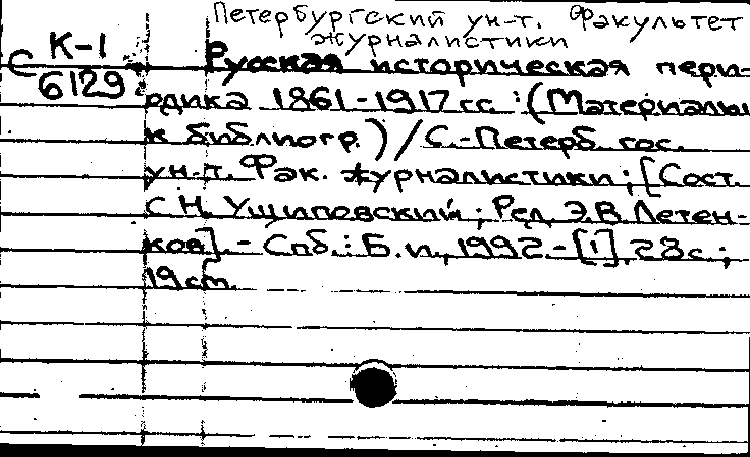 Петербургский ун-т. Факультет
журналистики
С К-1
6129
Русская историческая пери-
одика 1861-1917 гг. : (Материалы
к библиогр.) / С.-Петерб. гос.
ун-т. Фак. журналистики; [Сост.
С.Н. Ущиповский; Ред. Э.В. Летен-
ков]. - Спб.: Б.и., 1992. - [1], 28с.;
19 cm.